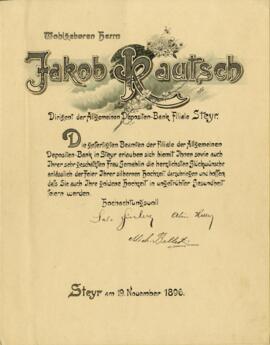 Wohlgeboren Herrn
Jakob Rautsch
Dirigent der Allgemeinen Depositen-Bank Filiale Steyr.
Die gefertigten Beamten der Filiale der Allgemeinen
Depositen-Bank in Steyr erlauben sich hiemit Ihnen sowie auch
Ihrer sehr geschätzten Frau Gemahlin die herzlichsten Glückwünsche
anlässlich der Feier Ihrer silbernen Hochzeit darzubringen und hoffen,
daß Sie auch Ihre goldene Hochzeit in ungetrübter Gesundheit
feiern werden.
Hochachtungsvoll
Steyr am 19. November 1896.